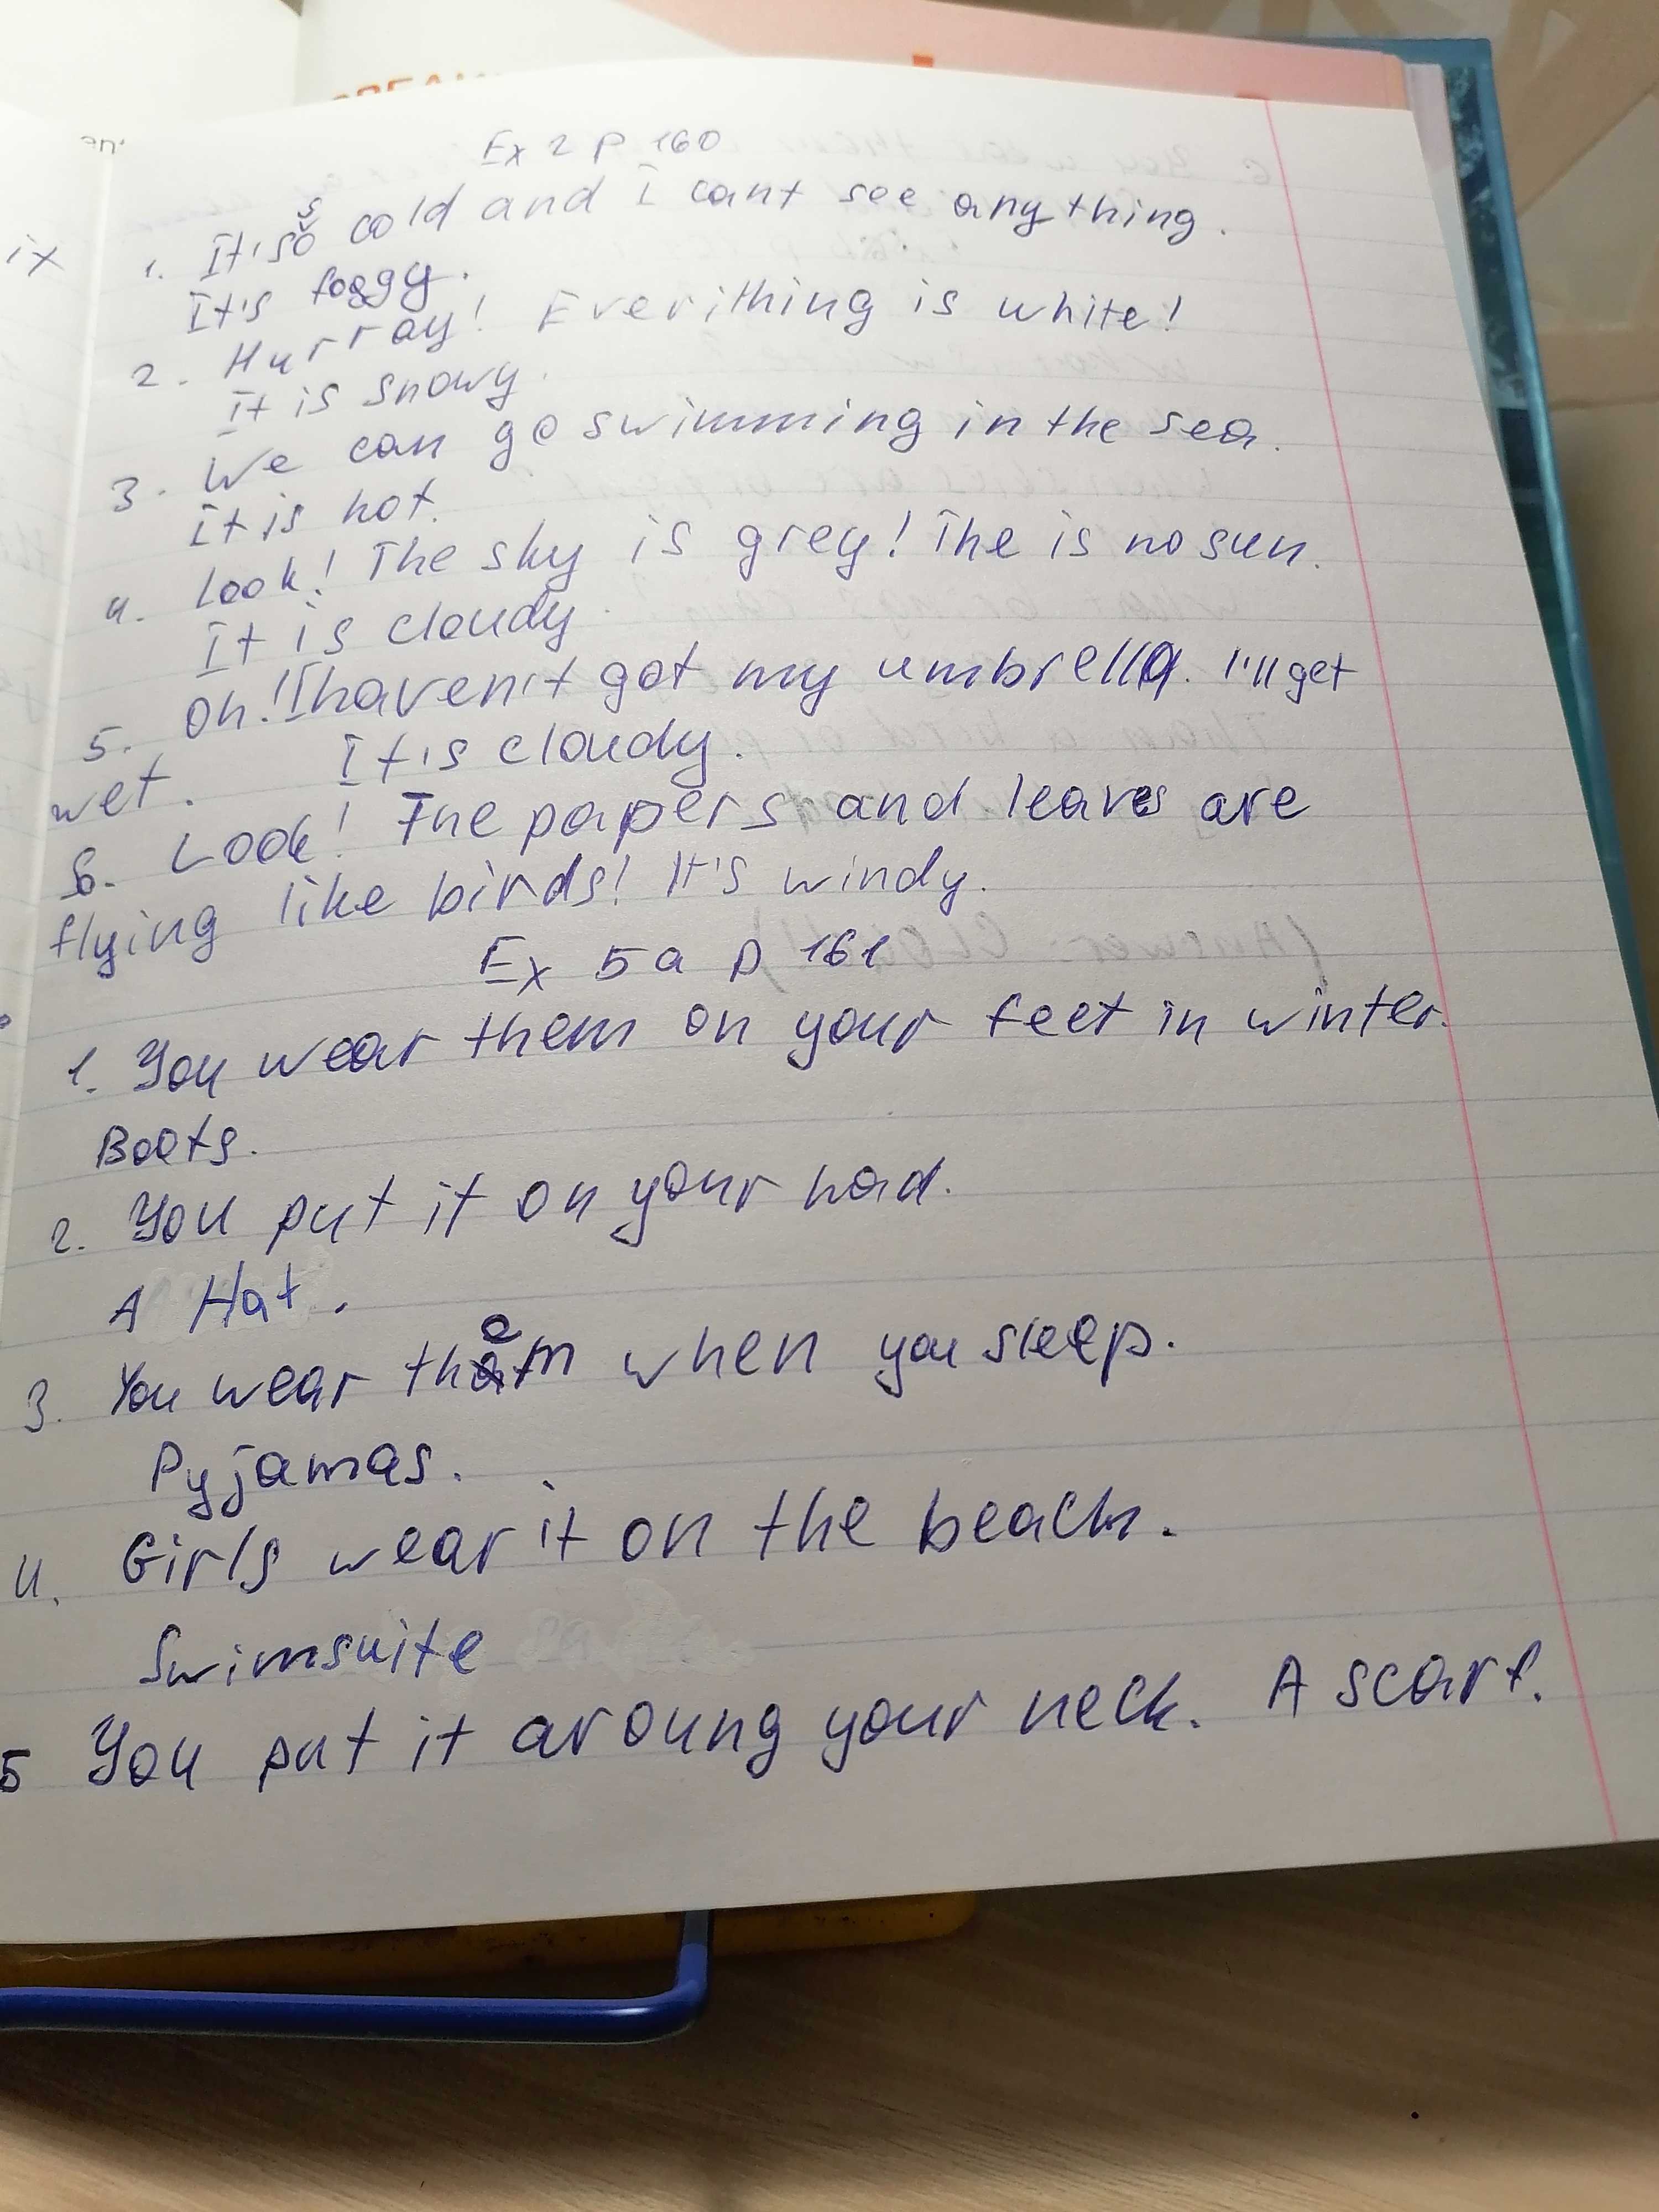 Ex 2 p 160
ix
1. It's so cold and I cant see anything.
It's foggy.
2. Hurray! Everithing is white!
It is snowy.
3. We can go swimming in the sea.
It is hot.
4. Look! The sky is grey! The is no sun.
It is cloudy.
5. Oh! I haven't got my umbrella. I'll get
wet. It is cloudy.
6. Look! The papers and leaves are
flying like birds! It's windy.
Ex 5a p 161
1. You wear them on your feet in winter.
Boots.
2. You put it on your had.
A Hat.
3. You wear them when you sleep.
Pyjamas.
4. Girls wear it on the beach.
Swimsuite
5 You put it aroung your neck. A scarf.